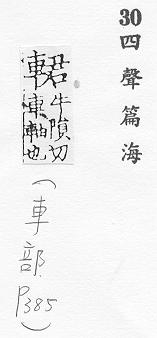 30 四聲篇海
輑 牛隕切
車軸也
(車部 P385)